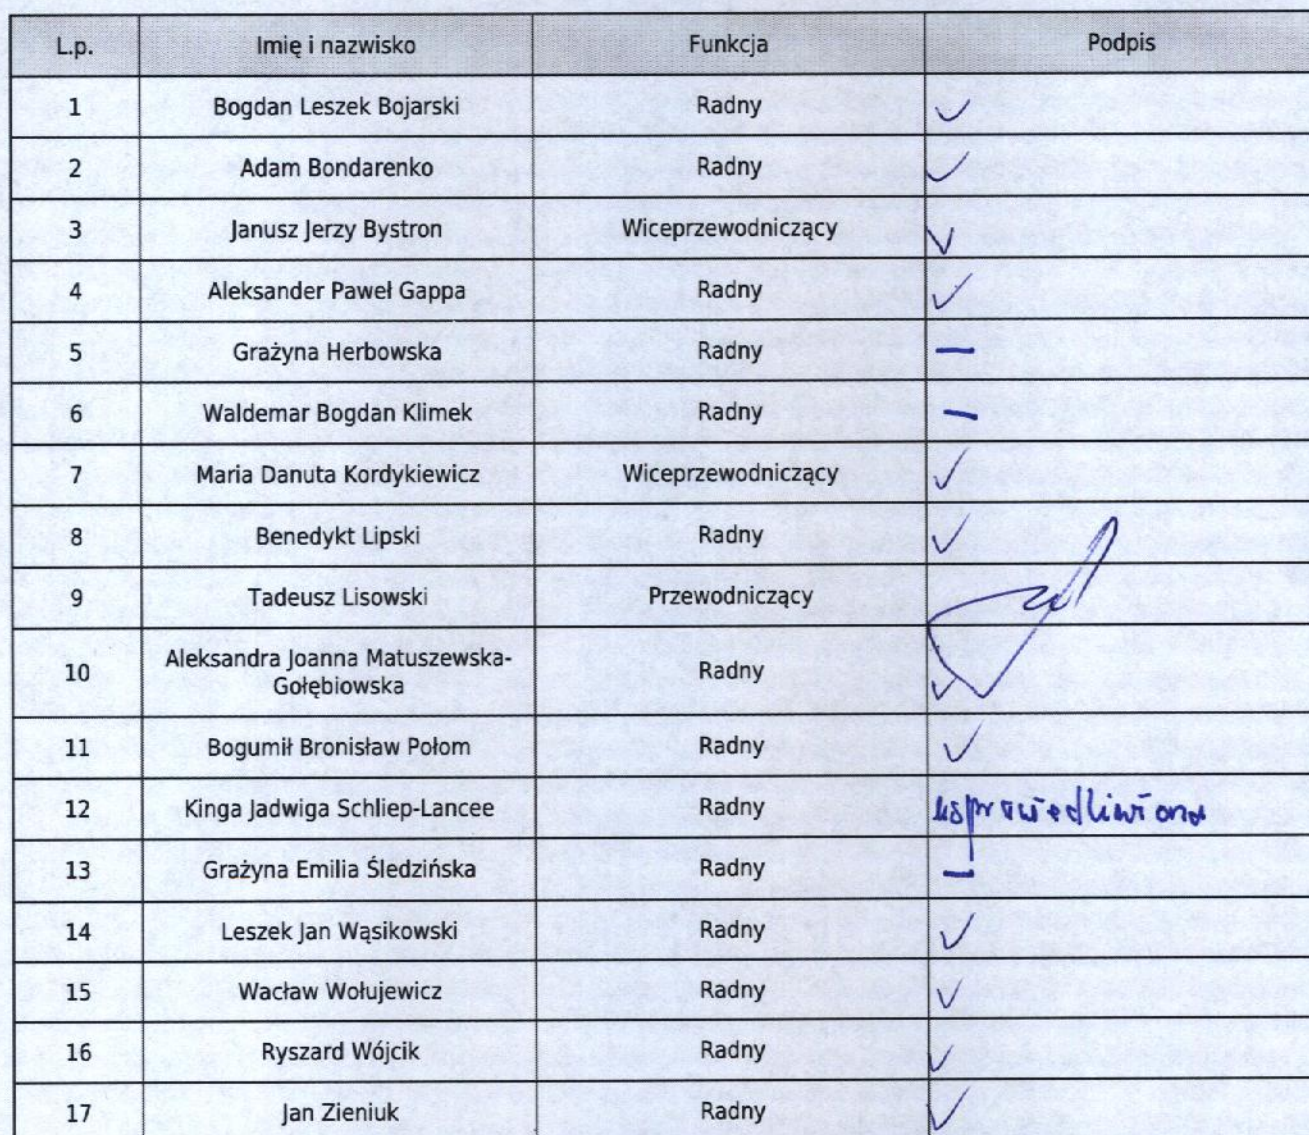 L.p. Imię i nazwisko Funkcja Podpis
1 Bogdan Leszek Bojarski Radny ✓
2 Adam Bondarenko Radny ✓
3 Janusz Jerzy Bystron Wiceprzewodniczący ✓
4 Aleksander Paweł Gappa Radny ✓
5 Grażyna Herbowska Radny —
6 Waldemar Bogdan Klimek Radny —
7 Maria Danuta Kordykiewicz Wiceprzewodniczący ✓
8 Benedykt Lipski Radny ✓
9 Tadeusz Lisowski Przewodniczący
10 Aleksandra Joanna Matuszewska-
Gołębiowska Radny ✓
11 Bogumił Bronisław Połom Radny ✓
12 Kinga Jadwiga Schliep-Lancee Radny usprawiedliwiona
13 Grażyna Emilia Śledzińska Radny —
14 Leszek Jan Wąsikowski Radny ✓
15 Wacław Wołujewicz Radny ✓
16 Ryszard Wójcik Radny ✓
17 Jan Zieniuk Radny ✓